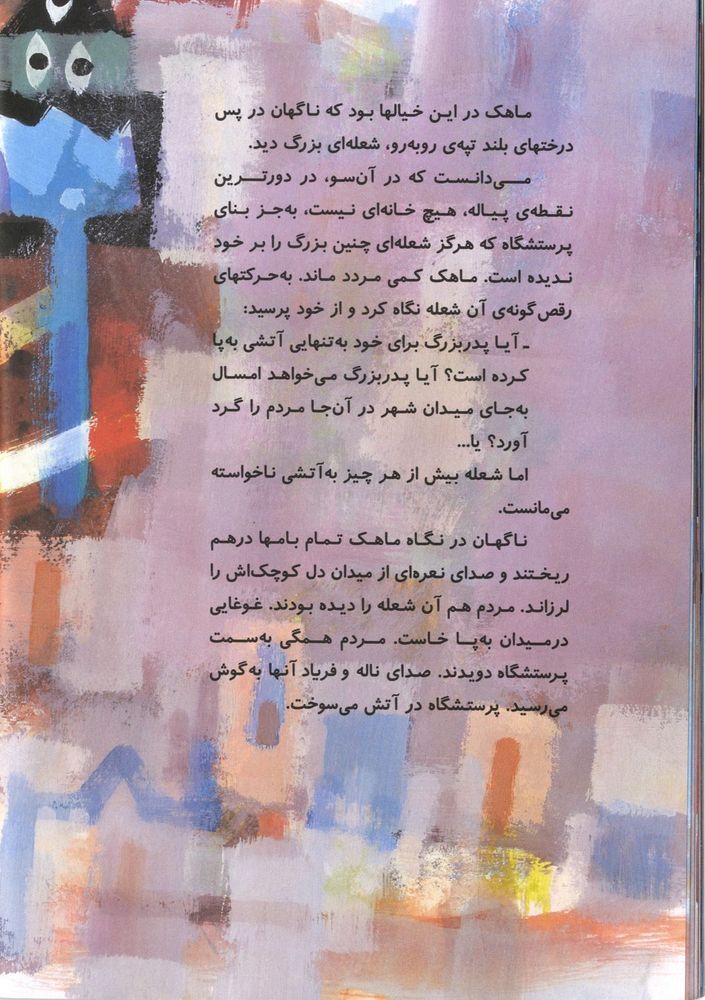 ماهک در این خیالها بود که ناگهان در پس
درختهای بلند تپه‌ی روبه‌رو، شعله‌ای بزرگ دید.
می‌دانست که در آن‌سو، در دورترین
نقطه‌ی پیاله، هیچ خانه‌ای نیست، به‌جز بنای
پرستشگاه که هرگز شعله‌ای چنین بزرگ را بر خود
ندیده است. ماهک کمی مردد ماند. به‌حرکتهای
رقص‌گونه‌ی آن شعله نگاه کرد و از خود پرسید:
ـ آیا پدربزرگ برای خود به‌تنهایی آتشی به‌پا
کرده است؟ آیا پدربزرگ می‌خواهد امسال
به‌جای میدان شهر در آن‌جا مردم را گرد
آورد؟ یا...
اما شعله بیش از هر چیز به‌آتشی ناخواسته
می‌مانست.
ناگهان در نگاه ماهک تمام بامها درهم
ریختند و صدای نعره‌ای از میدان دل کوچک‌اش را
لرزاند. مردم هم آن شعله را دیده بودند. غوغایی
درمیدان به‌پا خاست. مردم همگی به‌سمت
پرستشگاه دویدند. صدای ناله و فریاد آنها به‌گوش
می‌رسید. پرستشگاه در آتش می‌سوخت.